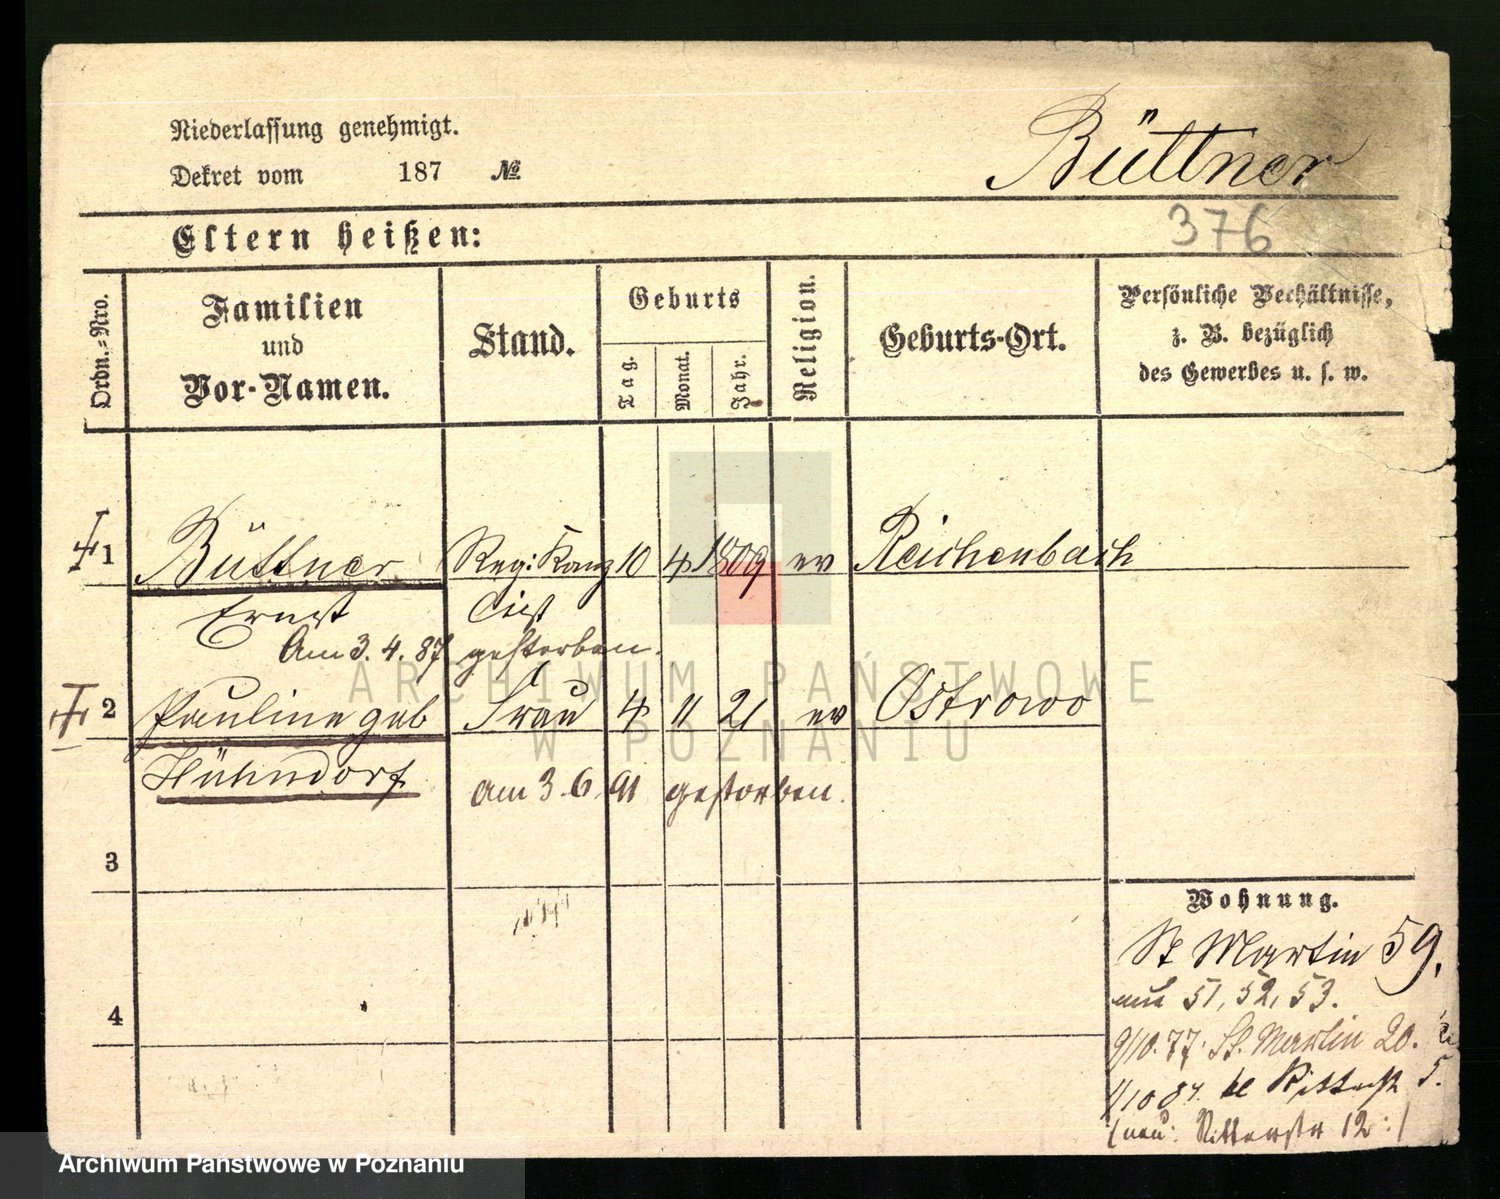 Niederlassung genehmigt.
Büttner
Dekret vom 187 №
376
Eltern heißen:
Ordn.-Nro.
Familien und Vor-Namen.
Stand.
Geburts
Tag. Monat. Jahr.
Religion.
Geburts-Ort.
Persönliche Verhältnisse,
z. B. bezüglich
des Gewerbes u. s. w.
1 Büttner Reg: Kanz 10 4 1809 ev Reichenbach
Ernst list
Am 3. 4. 87 gestorben.
2 Pauline geb Frau 4 11 21 ev Ostrowo
Hühndorf
am 3. 6. 91 gestorben.
3
4
Wohnung.
St Martin 59.
51, 52, 53.
9/10. 77. St. Martin 20.
1/10 87. kl Ritterstr 5.
(neu: Ritterstr 12:)
ARCHIWUM PAŃSTWOWE
W POZNANIU
Archiwum Państwowe w Poznaniu